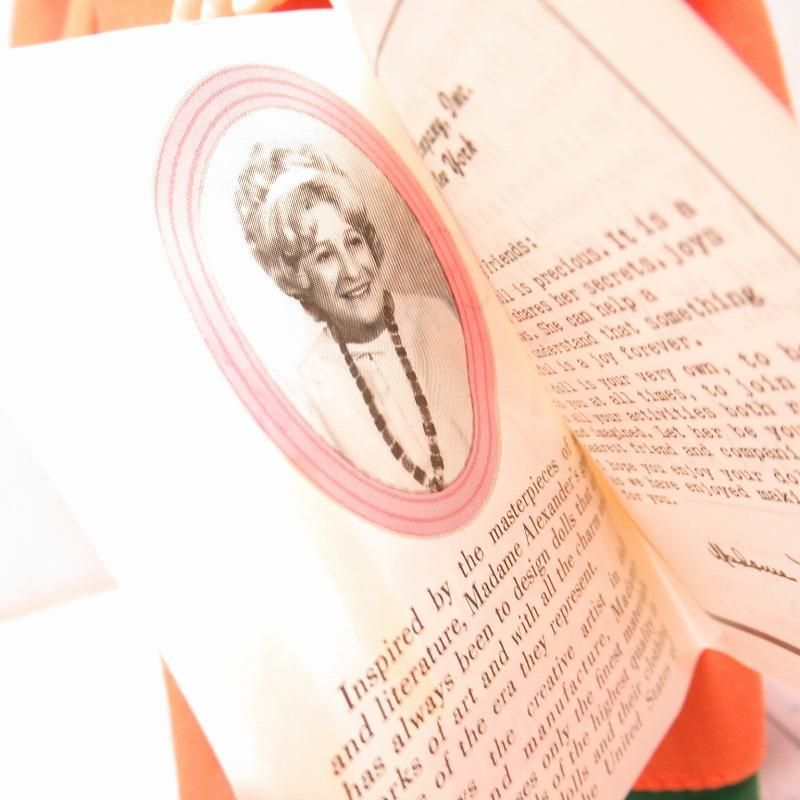 Inspired by the masterpieces of
and literature, Madame Alexander's
has always been to design dolls that
orks of art and with all the charm
s of the era they represent.
ys the creative artist in
nd manufacture, Madam
ses only the finest materia
s of the highest quality
dolls and their clothing
the United States
mpany, Inc.
New York
friends:
ll is precious. It is a
shares her secrets, joys
ws. She can help a
understand that something
ul is a joy forever.
doll is your very own, to
you at all times, to join
all your activities both
and imagined. Let her be you
friend and compani
hope you enjoy your do
as we have enjoyed maki
for you.
Madame